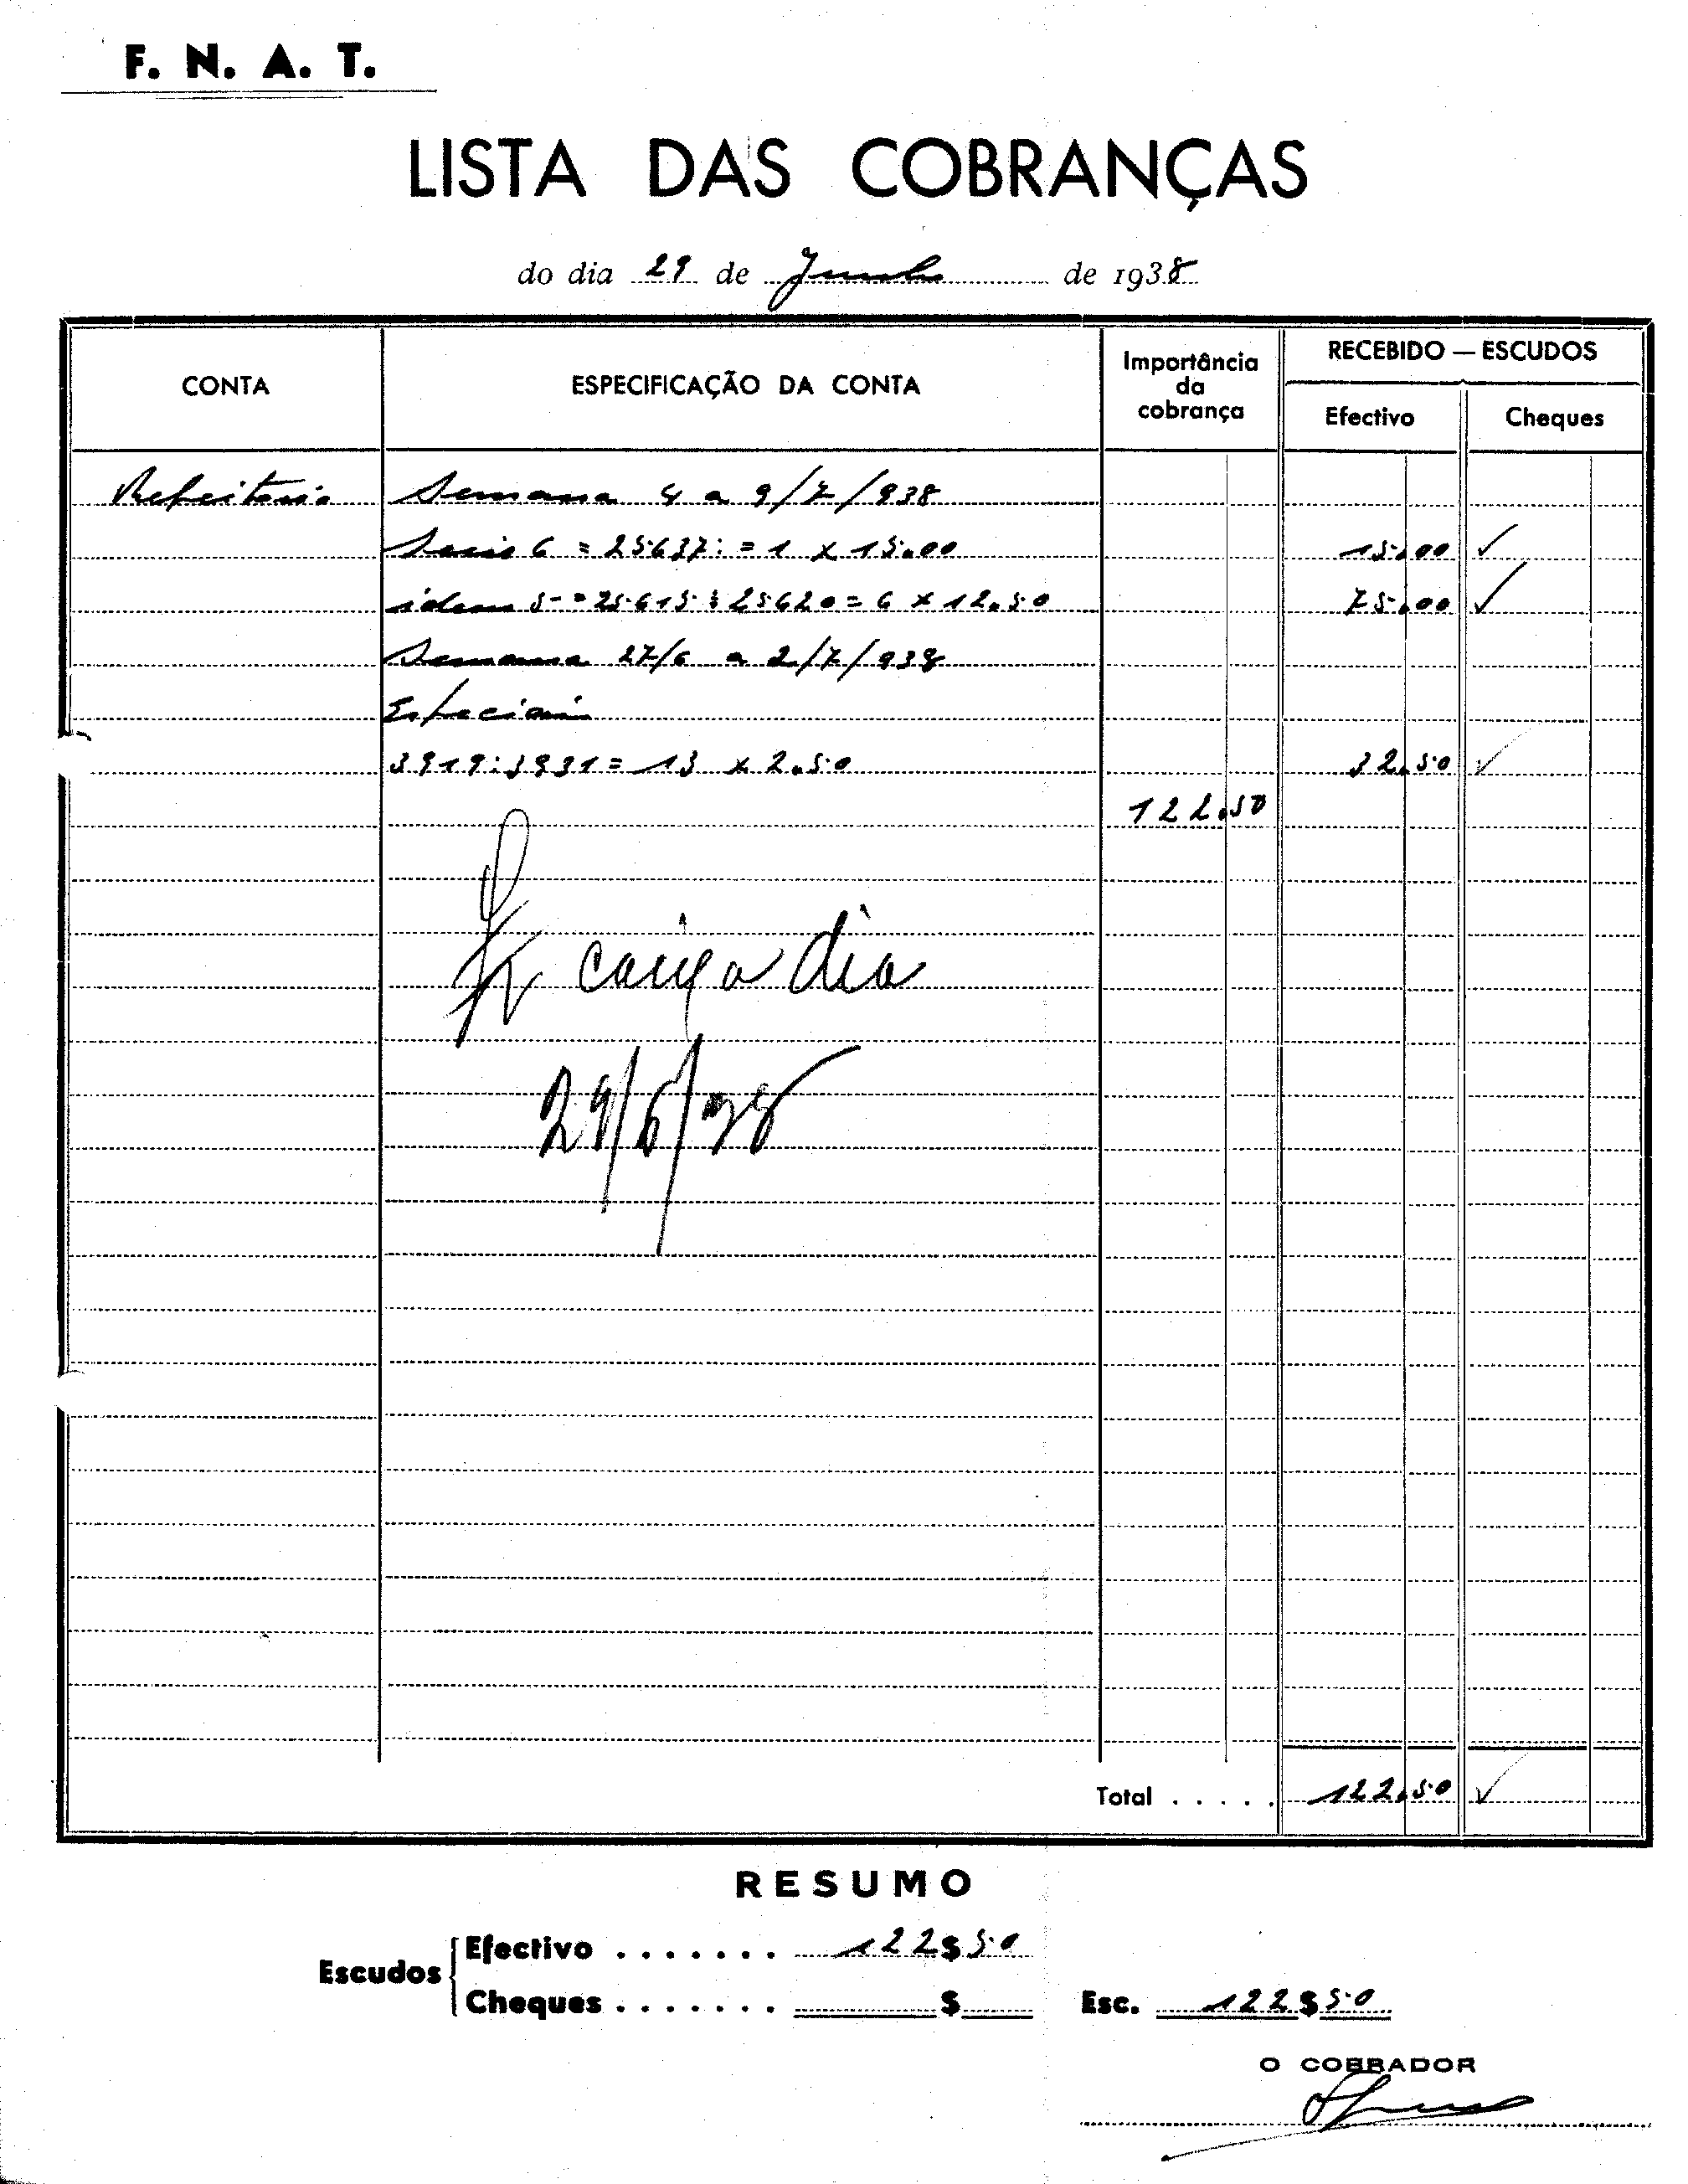 F. N. A. T.
LISTA DAS COBRANÇAS
do dia 29 de Junho de 1938
CONTA
ESPECIFICAÇÃO DA CONTA
Importância
da
cobrança
RECEBIDO — ESCUDOS
Efectivo
Cheques
Refeitorio Semana 4 a 9/7/938
Serie 6 = 25637: = 1 x 15.00 15.00 ✓
idem 5 - = 25615 : 25620 = 6 x 12.50 75.00 ✓
Semana 27/6 a 2/7/938
Especiais
3919:3931 = 13 x 2.50 32.50 ✓
122.50
caixa dia
29/6/38
Total . . . . . 122.50 ✓
RESUMO
Escudos
Efectivo . . . . . . . 122$50
Cheques . . . . . . . $
Esc. 122$50
O COBRADOR